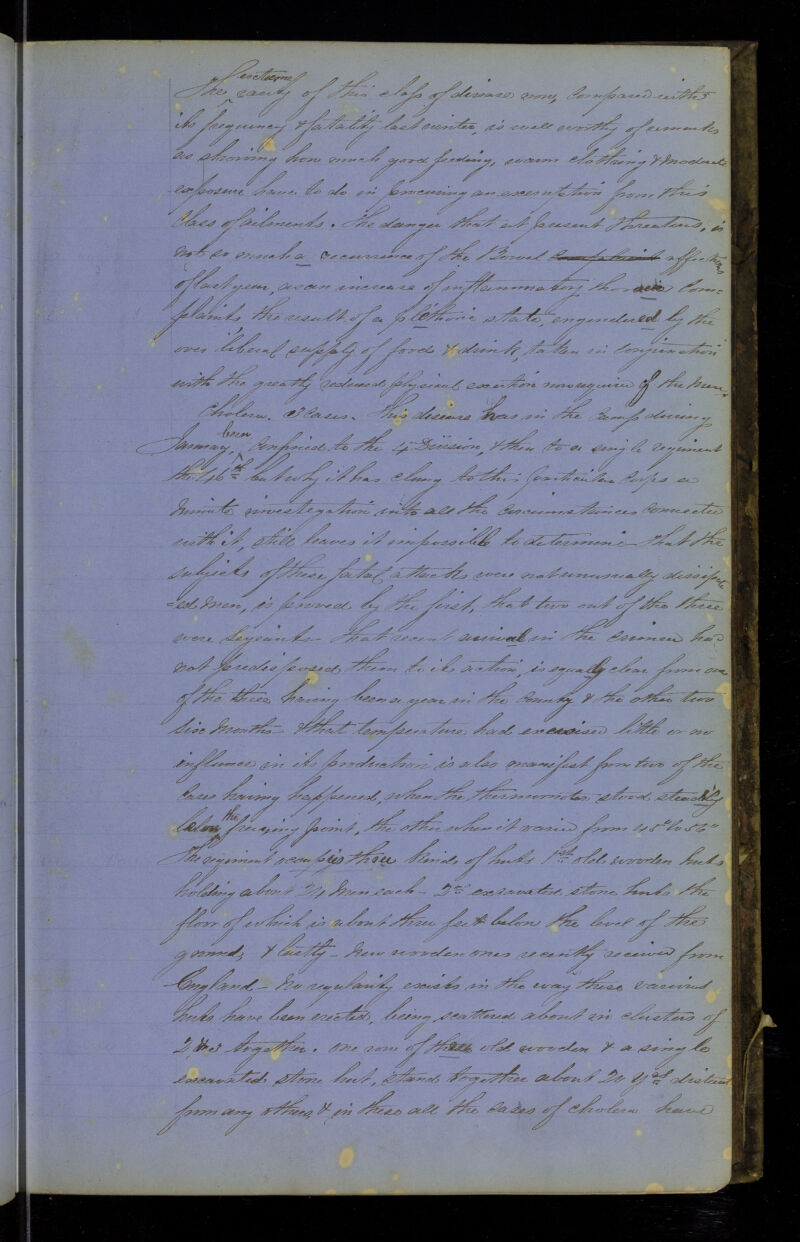 The rarity of this class of disease now, compared with
its frequency & fatality last winter, is well worthy of remark
as showing how much good feeding, warm clothing & moderate
exposure have to do in procuring an exemption from this
class of ailments. The danger that at present threatens, is
not so much a recurrence of the Bowel complaint affections
of last year, as an increase of inflammatory thoracic com=
plaints the result of a plethoric state, engendered by the
over liberal supply of food & drink, taken in conjunction
with the greatly reduced physical exertion now required of the men.
Cholera. 3 cases. This disease has in the camp during
January, been confined to the 4 Division, & then to a single regiment
the 46th but why it has clung to this particular Corps a
minute investigation into all the circumstances connected
with it, still leaves it impossible to determine. That the
subjects of these fatal attacks were not unusually dissipat
=ed men, is proved by the first, that two out of the three
were Serjeants. That recent arrival in the Crimea had
not predisposed them to its action, is equally clear from one
of the three having been a year in the country & the other two
six months. & that temperature had exercised little or no
influence in its production is also manifest from two of the
cases having happened, when the thermometer stood steadily
below the freezing point, the other when it varied from 45° to 56°
The regiment occupies three kinds of huts 1st old wooden huts
holding about 24 men each - 2nd excavated stone huts the
floor of which is about three feet below the level of the
ground; & lastly - new wooden ones recently received from
England - No regularity exists in the way these various
huts have been erected, being scattered about in clusters of
2 & 3 together. One row of three old wooden & a single
excavated stone hut, stand together about 20 Yds distant
from any others & in these all the cases of cholera have